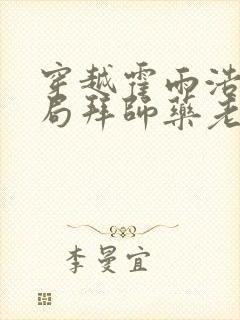 穿越霍雨浩
局拜師藥老
李曼宜